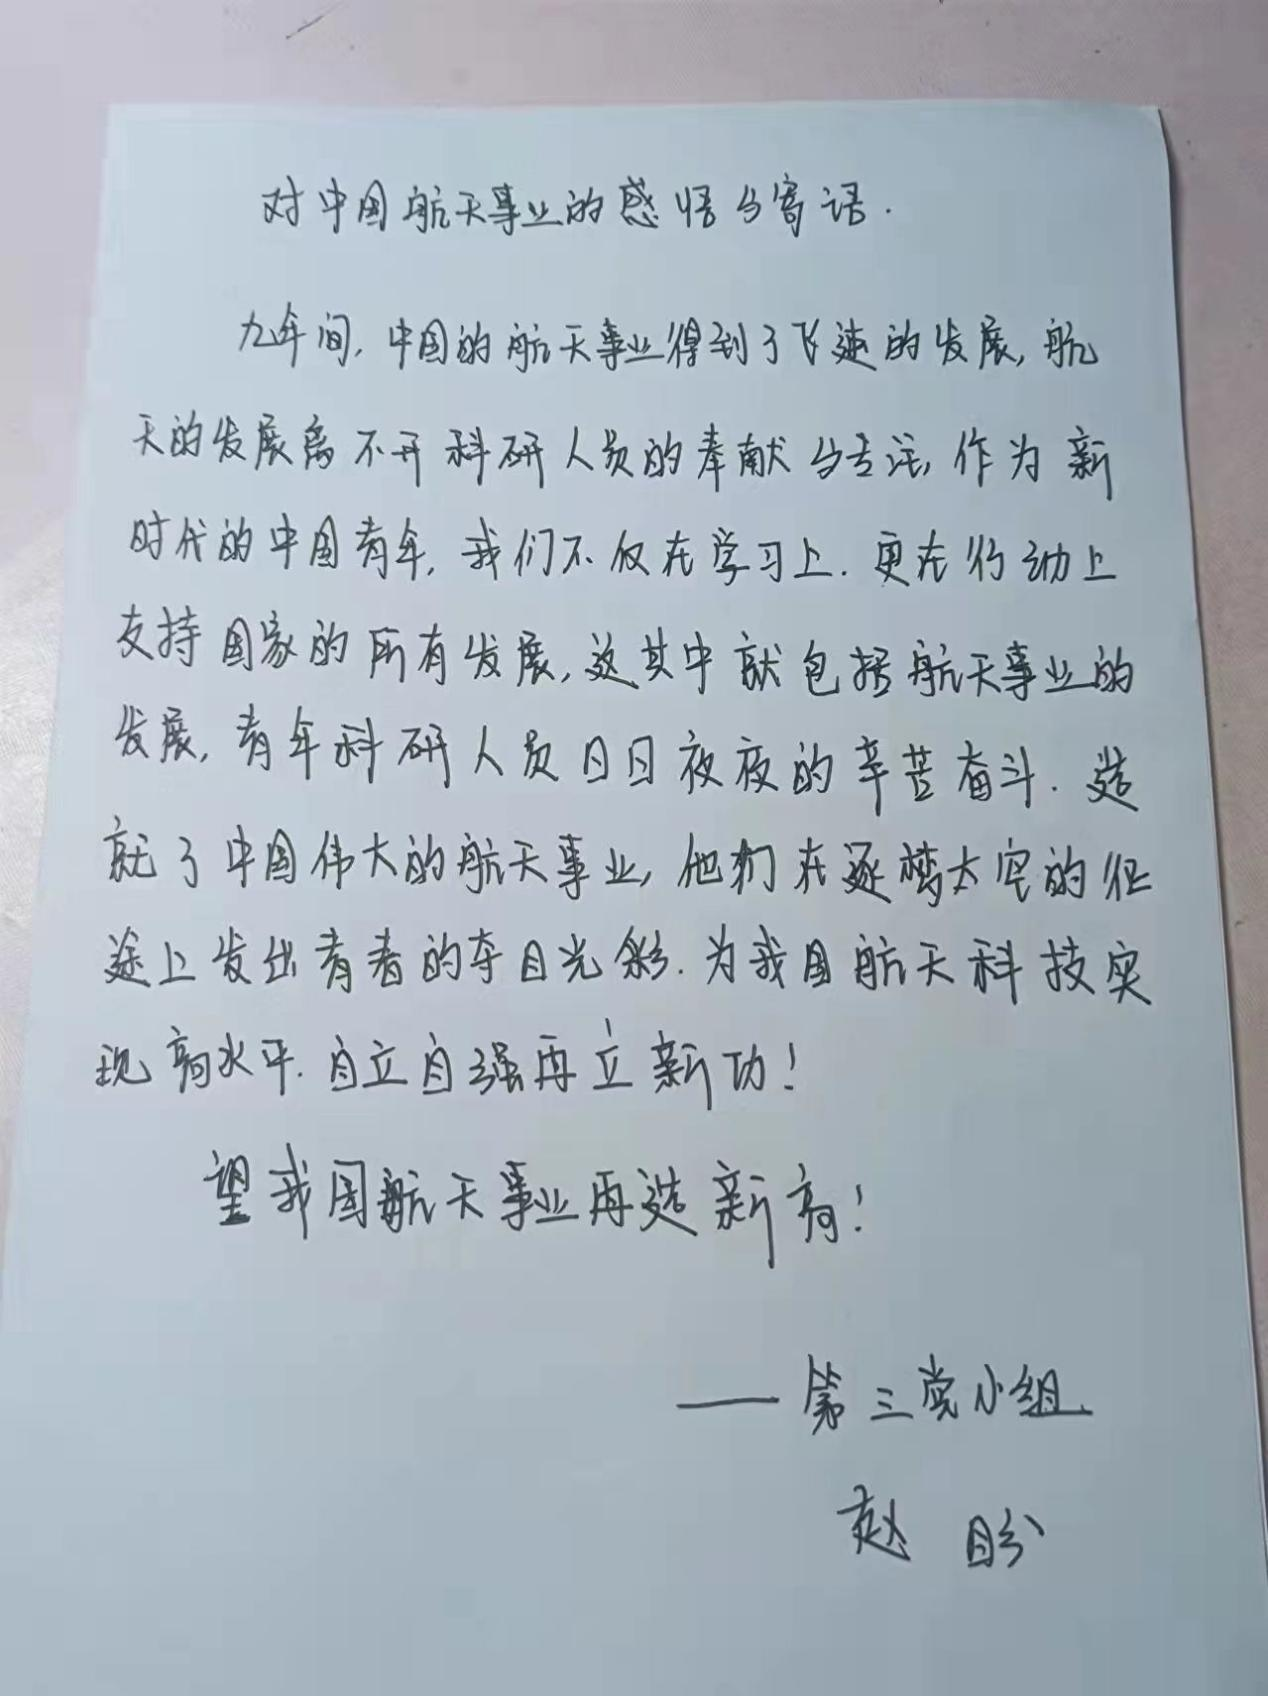 对中国航天事业的感悟与寄语.
九年间,中国的航天事业得到了飞速的发展,航
天的发展离不开科研人员的奉献与专注,作为新
时代的中国青年,我们不仅在学习上.更在行动上
支持国家的所有发展,这其中就包括航天事业的
发展,青年科研人员日日夜夜的辛苦奋斗.造
就了中国伟大的航天事业,他们在逐梦太空的征
途上发出青春的夺目光彩.为我国航天科技实
现高水平.自立自强再立新功!
望我国航天事业再造新高!
——第三党小组
赵盼